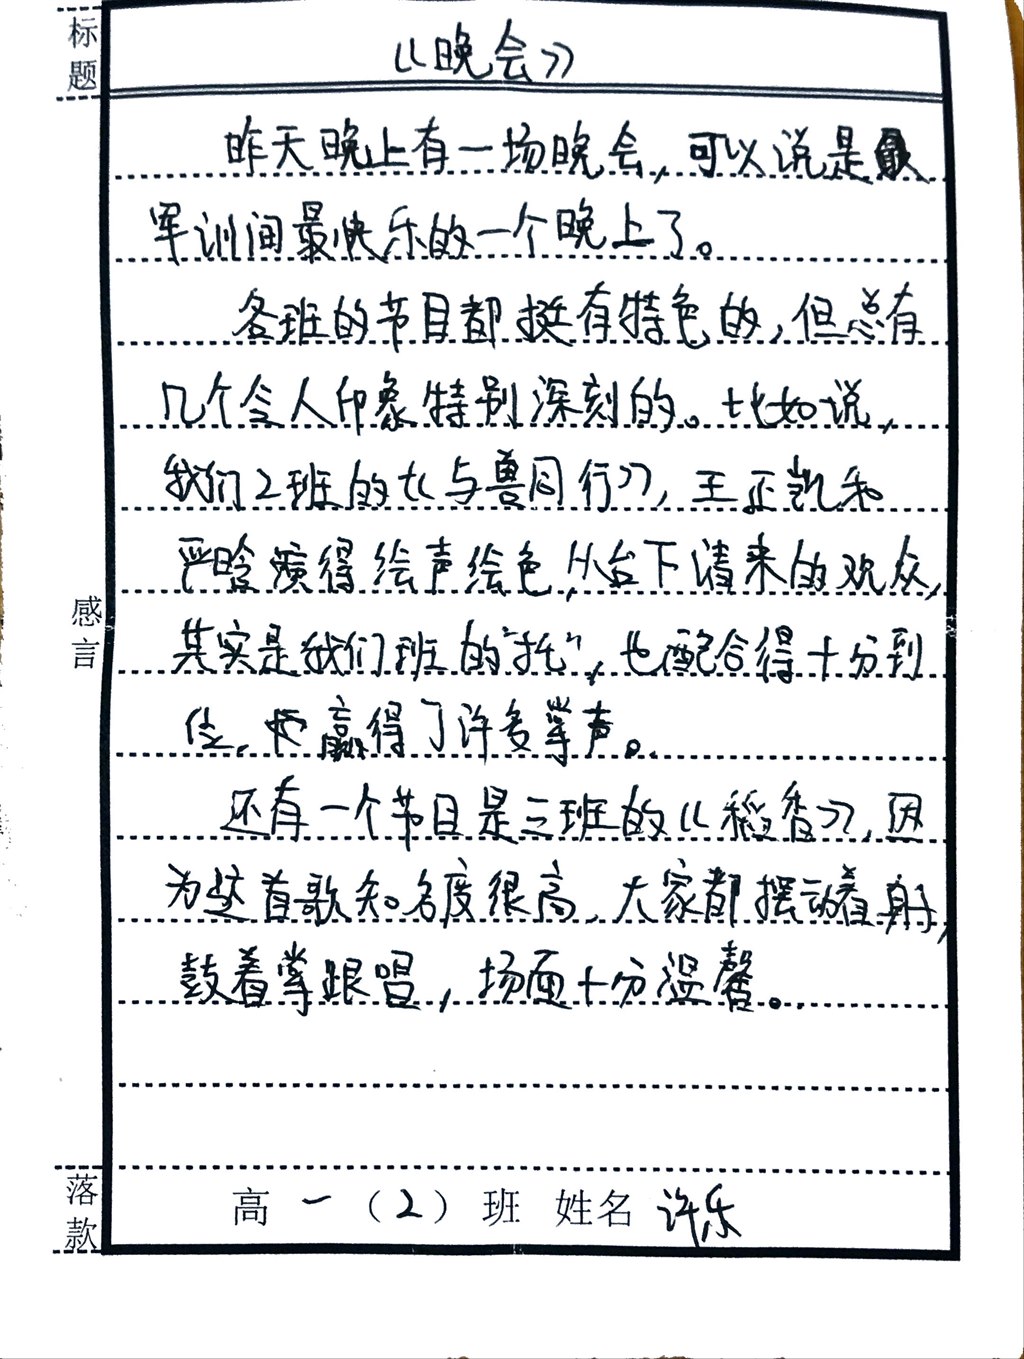 标题
《晚会》
昨天晚上有一场晚会,可以说是
军训间最快乐的一个晚上了。
各班的节目都挺有特色的,但总有
几个令人印象特别深刻的。比如说,
我们2班的《与兽同行》,王正凯和
严晗演得绘声绘色,从台下请来的观众,
感言
其实是我们班的“托”,也配合得十分到
位,也赢得了许多掌声。
还有一个节目是三班的《稻香》,因
为这首歌知名度很高,大家都摆动着身,
鼓着掌跟唱,场面十分温馨。
落款
高一(2)班 姓名 许乐